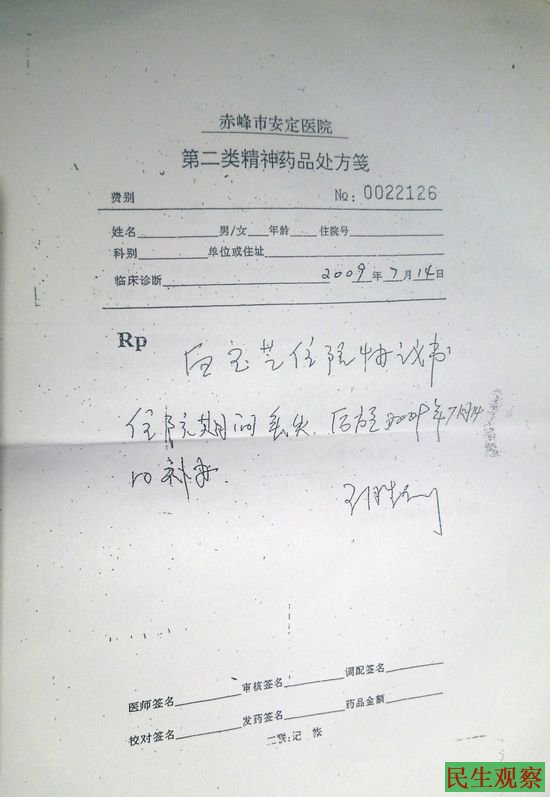 赤峰市安定医院
第二类精神药品处方笺
费别 No: 0022126
姓名 男/女 年龄 住院号
科别 单位或住址
临床诊断 2009年7月14日
Rp 住院协议书
住院期间丢失,后于2009年7月14
日补办.
医师签名 审核签名 调配签名
校对签名 发药签名 药品金额
二联:记 帐
民生观察